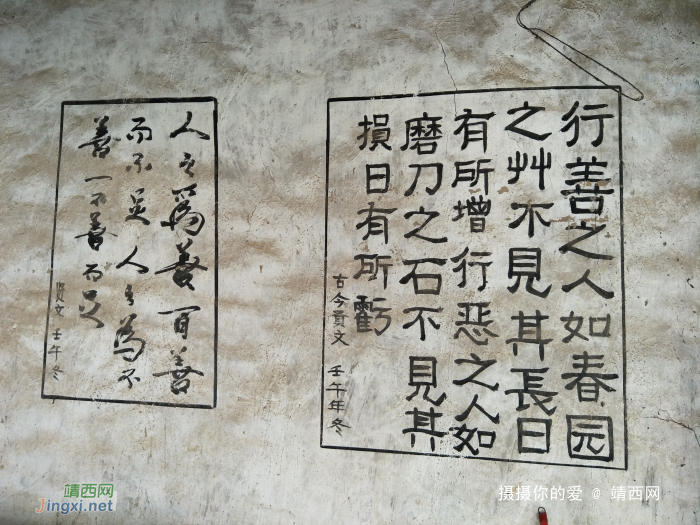 行善之人如春园
之艸不見其長日
有所增行恶之人如
磨刀之石不見其
損日有所虧
古今贤文 壬午年冬
人之為善百善
而不足人之為不
善一不善而足
贤文 壬午冬
靖西网
Jingxi.net
摄摄你的爱 @ 靖西网